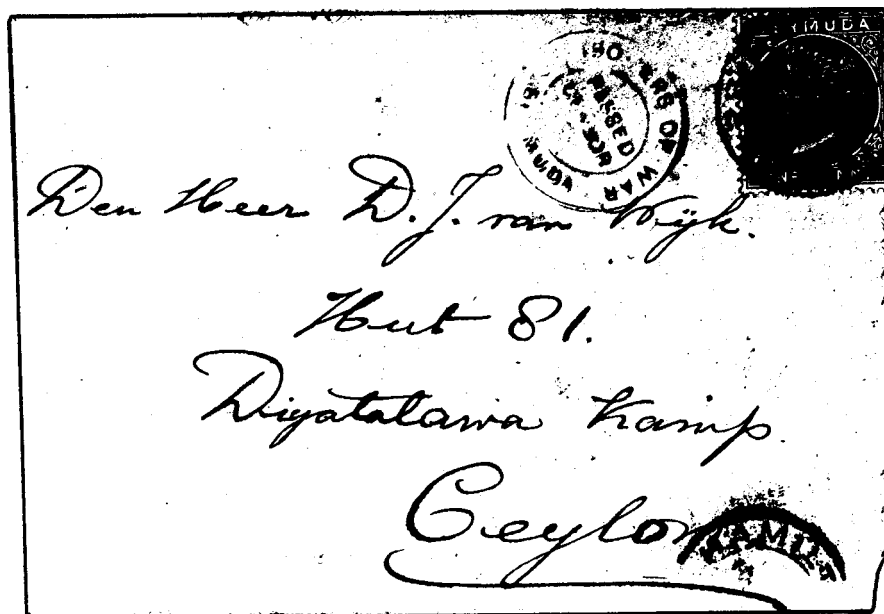 BERMUDA
PASSED
OF WAR
Den Heer D. J. van Wijk.
Hut 81.
Diyatalawa Kamp.
Ceylon